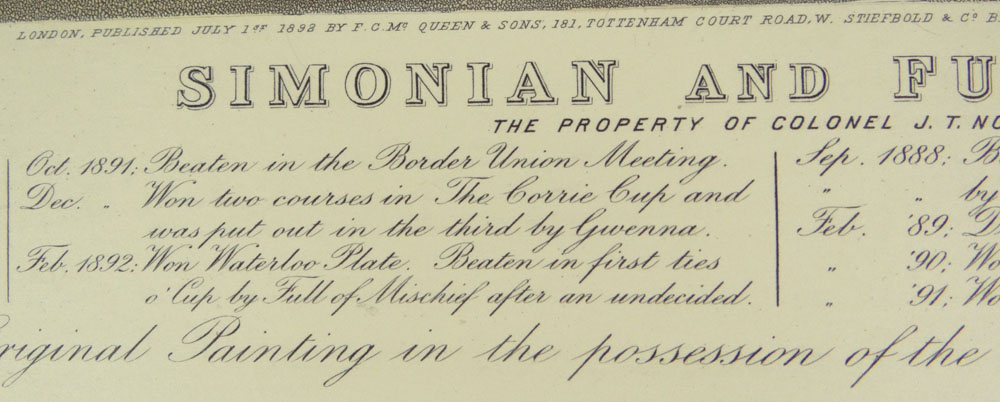 LONDON, PUBLISHED JULY 1ST 1892 BY F. C. Mc QUEEN & SONS, 181, TOTTENHAM COURT ROAD, W. STIEFBOLD & Co B
SIMONIAN AND FU
THE PROPERTY OF COLONEL J. T. NO
Oct. 1891: Beaten in the Border Union Meeting.
Dec. „ Won two courses in The Corrie Cup and
was put out in the third by Gwenna.
Feb. 1892: Won Waterloo Plate. Beaten in first ties
o' Cup by Full of Mischief after an undecided.
Sep. 1888: B
„ „ by
Feb. '89: D
„ '90: Wo
„ '91: Wo
riginal Painting in the possession of the